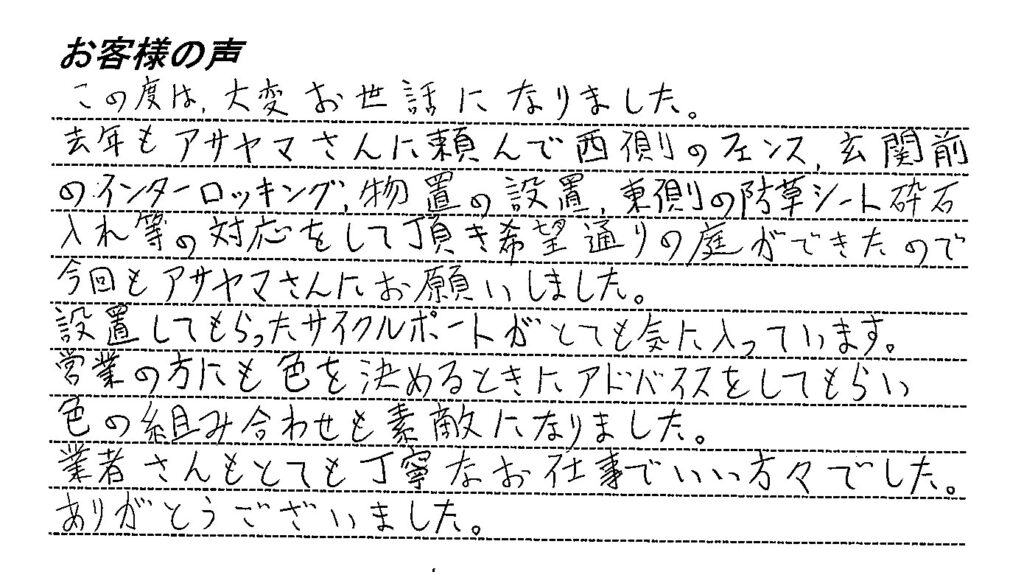 お客様の声
この度は、大変お世話になりました。
去年もアサヤマさんに頼んで西側のフェンス、玄関前
のインターロッキング、物置の設置、東側の防草シート砕石
入れ等の対応をして頂き希望通りの庭ができたので
今回もアサヤマさんにお願いしました。
設置してもらったサイクルポートがとても気に入っています。
営業の方にも色を決めるときにアドバイスをしてもらい
色の組み合わせも素敵になりました。
業者さんもとても丁寧なお仕事でいい方々でした。
ありがとうございました。